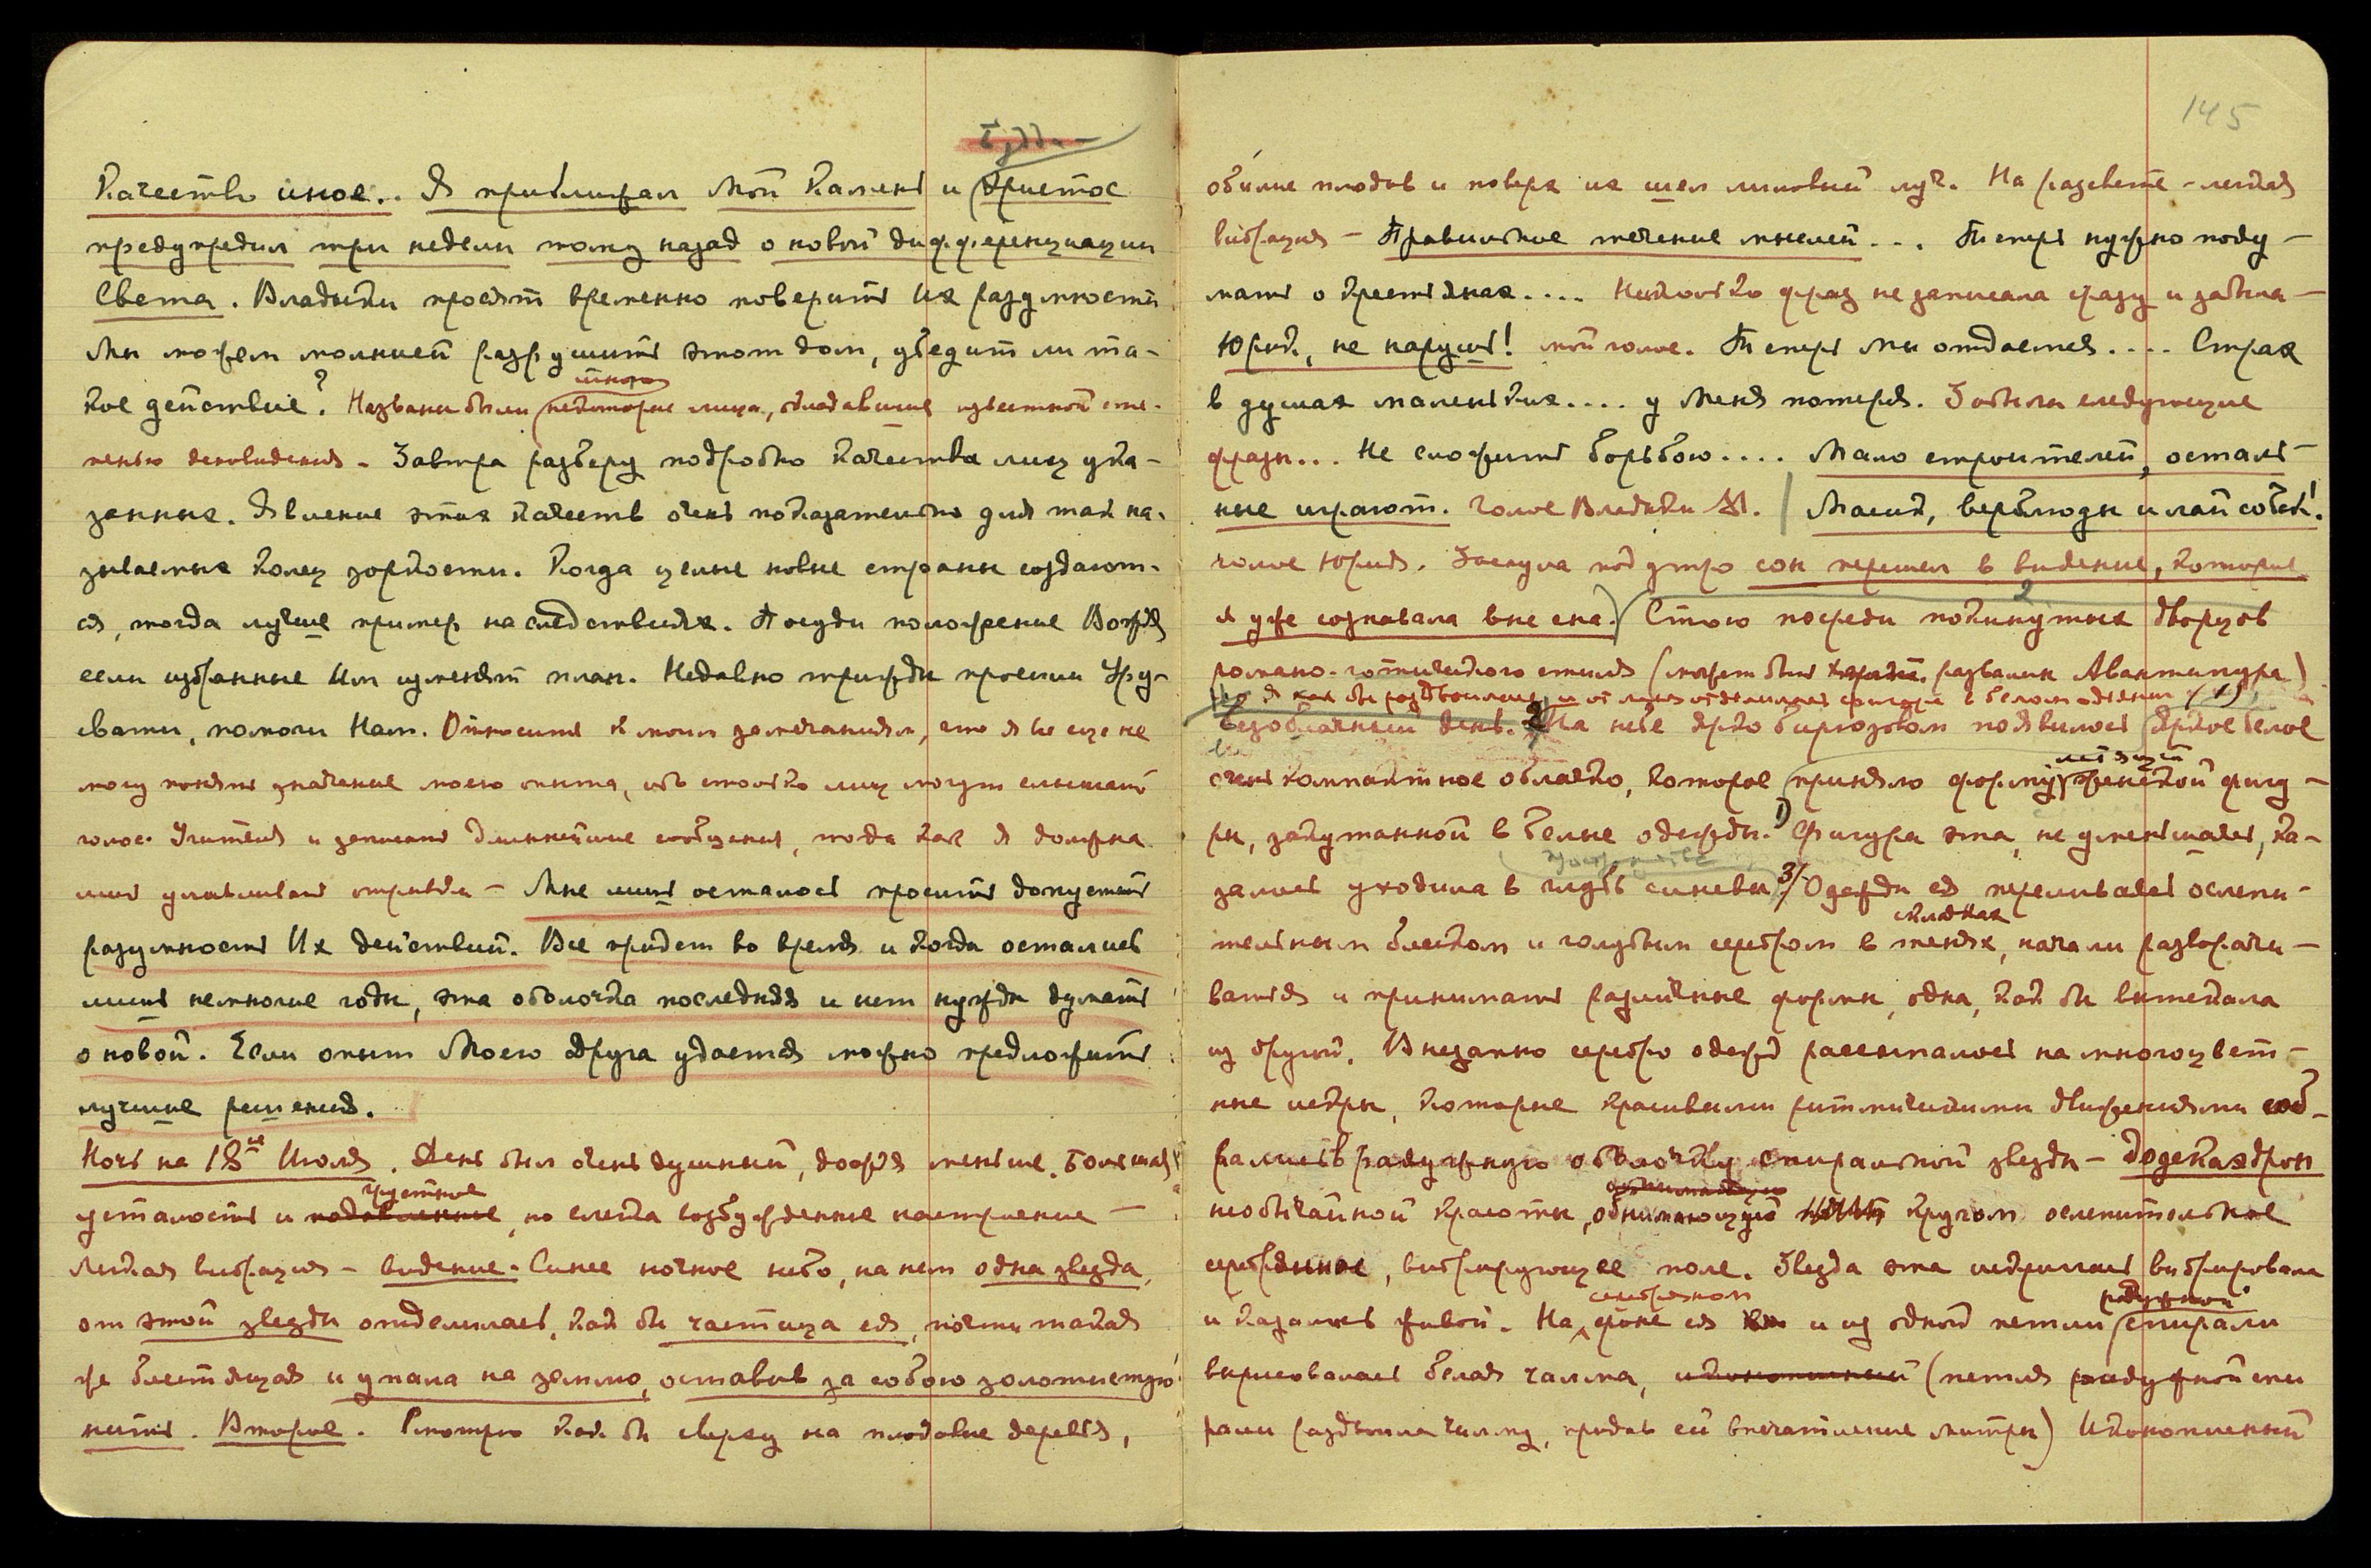 Будда
Качество иное.. Я приближал Мой Камень и Христос
предупредил три недели тому назад о новой дифференциации
Света. Владыки просят временно поверить Их разумности
Мы можем молнией разрушить этот дом, убедит ли та-
кое действие? Названы были некоторые лица, обладавшие известной сте-
пенью ясновидения - Завтра разберу подробно качества лиц ука-
занных. Явление этих качеств очень показательно для так на-
зываемых колец зоркости. Когда целые новые страны создают-
ся, тогда лучше пример на следствиях. Посуди положение Вождя
если избранные Им изменят план. Недавно трижды просили Уру-
свати, помоги Нам. Относит к моим замечаниям, что я все еще не
могу понять значение моего опыта, ибо столько лиц могут слышать
голос Учителя и записать длиннейшие сообщения, тогда как я должна
лишь улавливать отрывки - Мне лишь осталось просить допустить
разумность Их действий. Все придет во время и когда остались
лишь немногие годы, эта оболочка последняя и нет нужды думать
о новой. Если опыт Моего друга удается можно предложить
лучшие решения.
Ночь на 18ое Июля. День был очень душный, дождя меньше. Большая
грустное
усталость и подавленное, но слегка возбужденное настроение -
Легкая вибрация - видение. Синее ночное небо, на нем одна звезда,
от этой звезды отделилась, как бы частица ея, почти такая
же блестящая и упала на землю, оставив за собою золотистую
нить. Второе. Смотрю как бы сверху на плодовые деревья,
145
обилие плодов и поверх их шел лиловый луч. На рассвете - легкая
вибрация - Правильное течение мыслей... Теперь нужно поду-
мать о крестьянах.... Несколько фраз не записала сразу и забыла -
Юрий, не нарушь! мой голос. Теперь мы отдаемся.... Страх
в душах маленьких.... у Меня потеря. Забыли следующие
фразы... Не сложить борьбою.... Мало строителей, осталь-
ные играют. Голос Владыки М. Масик, верблюды и лай собак!
голос Юрия. Заснула под утро сон перешел в видение, которые
я уже сознавала вне сна. Стою посреди покинутых дворцов
романо-готического стиля (может быть развалин Авантипура)
но я как бы раздвоилась и от меня отделилась фигура в белом одеянии
безоблачный день. На небе ярко бирюзовом появилось яркое белое
очень компактное облачко, которое приняло форму женской фигу-
ры, закутанной в белые одежды. Фигура эта, не уменьшаясь, ка-
залась уходила в глубь синевы 3/ Одежды ея переливаясь ослепи-
складках
тельным блеском и голубым серебром в тенях, начали разворачи-
ваться и принимать различные формы, одна, как бы вытекала
из другой. Внезапно серебро одежд рассыпалось на многоцвет-
ные искры, которые красивыми ритмическими движениями соб-
рались в радужную оболочку спиральной звезды - Додекаэдрон
необычайной красоты, обнимающую кругом ослепительное
серебряное, вибрирующее поле. Звезда эта искрилась вибрировала
серебряном
радужной
и казалась живой. На фоне ея и из одной петли спирали
вырисовалась белая чалма, (петля радужной спи
рали раздвоила чалму, придав ей впечатление митры) Иконописный